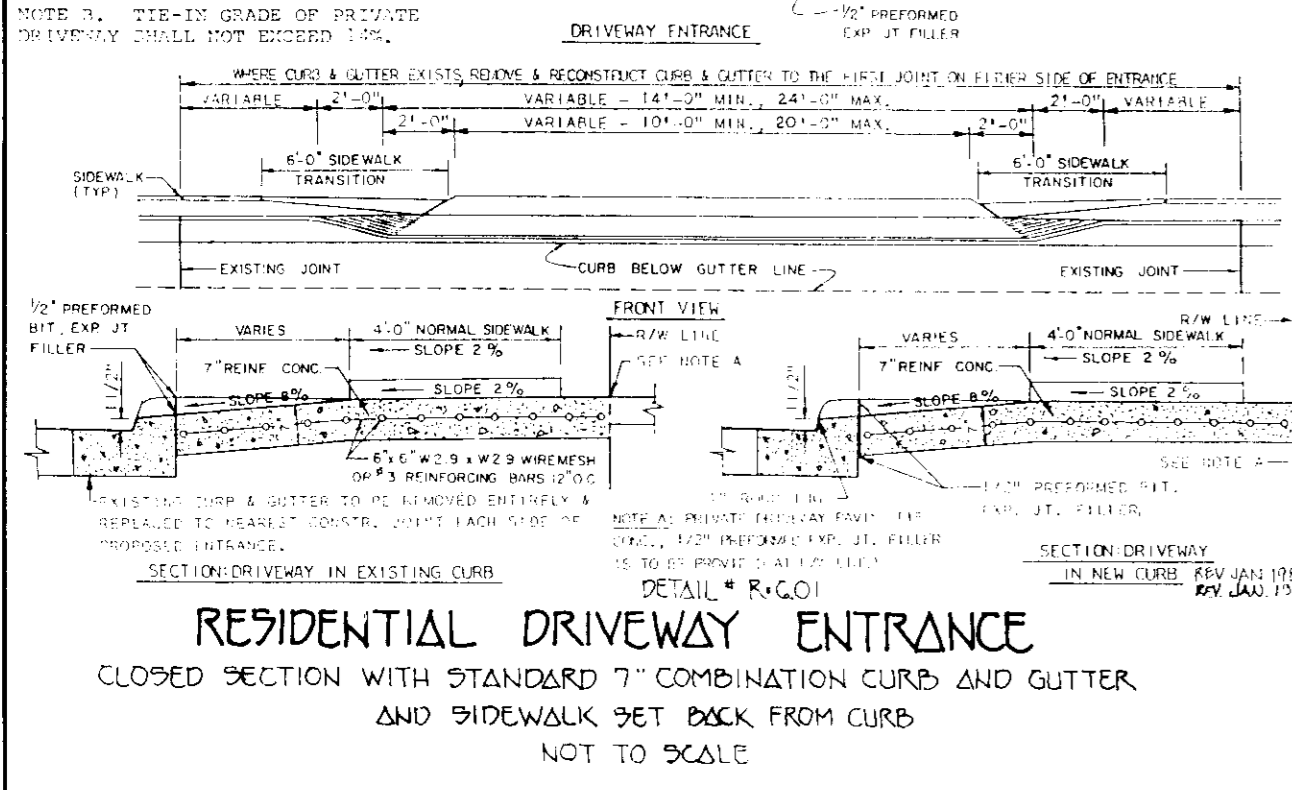 NOTE B. TIE-IN GRADE OF PRIVATE
DRIVEWAY SHALL NOT EXCEED 14%.
DRIVEWAY ENTRANCE
1/2" PREFORMED
EXP JT FILLER
WHERE CURB & GUTTER EXISTS, REMOVE & RECONSTRUCT CURB & GUTTER TO THE FIRST JOINT ON EITHER SIDE OF ENTRANCE
VARIABLE 2'-0" VARIABLE - 14'-0" MIN., 24'-0" MAX. 2'-0" VARIABLE
2'-0" VARIABLE - 10'-0" MIN., 20'-0" MAX. 2'-0"
6'-0" SIDEWALK
TRANSITION
6'-0" SIDEWALK
TRANSITION
SIDEWALK
(TYP)
EXISTING JOINT
CURB BELOW GUTTER LINE
EXISTING JOINT
FRONT VIEW
1/2" PREFORMED
BIT. EXP. JT
FILLER
VARIES
4'-0" NORMAL SIDEWALK
SLOPE 2 %
7" REINF CONC.
SLOPE 8%
SLOPE 2 %
1 1/2"
R/W LINE
SEE NOTE A
6" x 6" W2.9 x W2.9 WIREMESH
OR #3 REINFORCING BARS 12" O.C
EXISTING CURB & GUTTER TO BE REMOVED ENTIRELY &
REPLACED TO NEAREST CONSTR. JOINT EACH SIDE OF
PROPOSED ENTRANCE.
SECTION: DRIVEWAY IN EXISTING CURB
R/W LINE
VARIES
4'-0" NORMAL SIDEWALK
SLOPE 2 %
7" REINF CONC.
SLOPE 8%
SLOPE 2 %
1 1/2"
SEE NOTE A
1/2" PREFORMED BIT.
EXP. JT. FILLER
NOTE A: PRIVATE DRIVEWAY
CONC., 1/2" PREFORMED EXP. JT. FILLER
IS TO BE
SECTION: DRIVEWAY
IN NEW CURB
REV JAN
REV. JAN.
DETAIL # R-6.01
RESIDENTIAL DRIVEWAY ENTRANCE
CLOSED SECTION WITH STANDARD 7" COMBINATION CURB AND GUTTER
AND SIDEWALK SET BACK FROM CURB
NOT TO SCALE